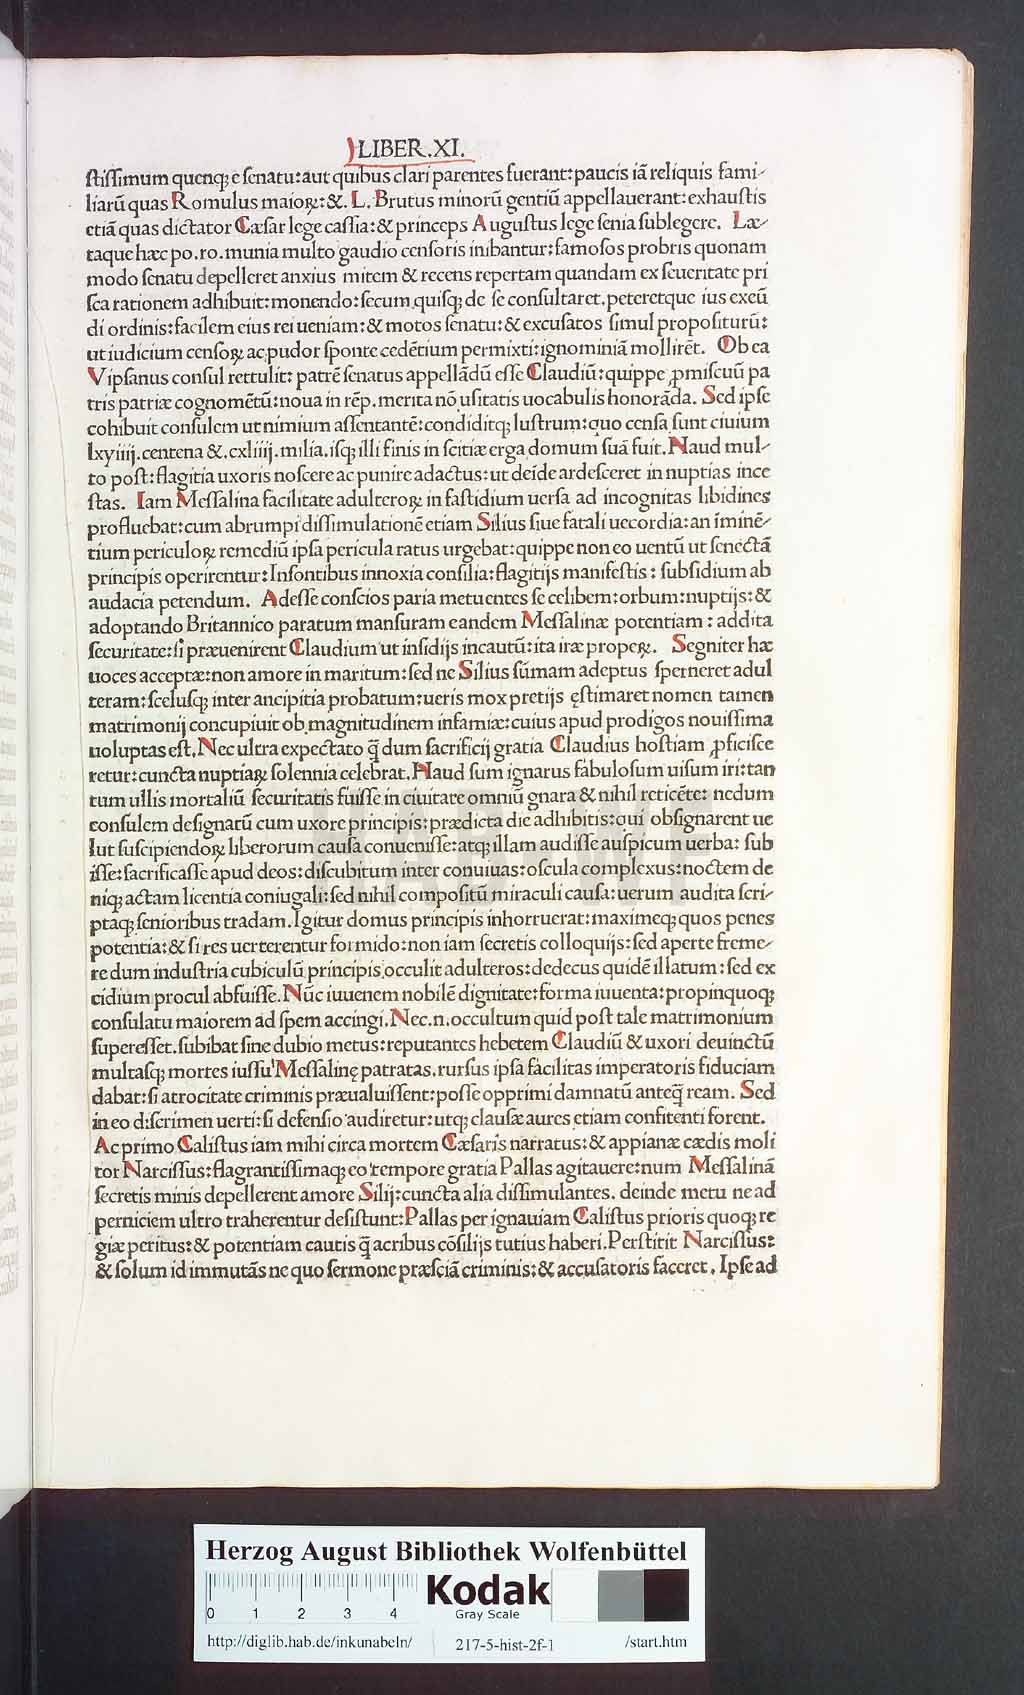 LIBER.XI.
ſtiſſimum quenqȝ e ſenatu:aut quibus clari parentes fuerant:paucis iã reliquis fami-
liarũ quas Romulus maioꝝ:&. L. Brutus minorũ gentiũ appellauerant:exhauſtis
etiã quas dictator Cæſar lege caſſia:& princeps Auguſtus lege ſenia ſublegere. Læ-
taque hæc po.ro.munia multo gaudio cenſoris inibantur:famoſos probris quonam
modo ſenatu depelleret anxius mitem & recens repertam quandam ex ſeueritate pri
ſca rationem adhibuit:monendo:ſecum quiſqȝ de ſe conſultaret.peteretque ius exeũ
di ordinis:facilem eius rei ueniam:& motos ſenatu:& excuſatos ſimul propoſiturũ:
ut iudicium cenſoꝝ ac pudor ſponte cedẽtium permixti:ignominiã mollirẽt. Ob ea
Vipſanus conſul rettulit: patrẽ ſenatus appellãdũ eſſe Claudiũ:quippe ꝓmiſcuũ pa
tris patriæ cognomẽtũ:noua in rẽp.merita nõ uſitatis uocabulis honorãda. Sed ipſe
cohibuit conſulem ut nimium aſſentantẽ:condiditqȝ luſtrum:quo cenſa ſunt ciuium
lxyiiij.centena &.cxliiij.milia.iſqȝ illi finis in ſcitiæ erga domum ſuã fuit.Naud mul-
to poſt:flagitia uxoris noſcere ac punire adactus:ut deĩde ardeſceret in nuptias ince
ſtas. Iam Meſſalina facilitate adulteroꝝ in faſtidium uerſa ad incognitas libidines
profluebat:cum abrumpi diſſimulationẽ etiam Silius ſiue fatali uecordia:an ĩminẽ-
tium periculoꝝ remediũ ipſa pericula ratus urgebat:quippe non eo uentũ ut ſenectã
principis operirentur:Inſontibus innoxia conſilia:flagitijs manifeſtis: ſubſidium ab
audacia petendum. Adeſſe conſcios paria metuentes ſe celibem:orbum:nuptijs:&
adoptando Britannico paratum manſuram eandem Meſſalinæ potentiam: addita
ſecuritate:ſi præuenirent Claudium ut inſidijs incautũ:ita iræ properꝝ. Segniter hæ
uoces acceptæ:non amore in maritum:ſed ne Silius ſũmam adeptus ſperneret adul
teram:ſceluſqȝ inter ancipitia probatum:ueris mox pretijs ęſtimaret nomen tamen
matrimonij concupiuit ob magnitudinem infamiæ:cuius apud prodigos nouiſſima
uoluptas eſt.Nec ultra expectato q̃ dum ſacrificij gratia Claudius hoſtiam ꝓficiſce
retur:cuncta nuptiaꝝ ſolennia celebrat.Naud ſum ignarus fabuloſum uiſum iri:tan
tum ullis mortaliũ ſecuritatis fuiſſe in ciuitate omniũ gnara & nihil reticẽte: nedum
conſulem deſignatũ cum uxore principis:prædicta die adhibitis:qui obſignarent ue
lut ſuſcipiendoꝝ liberorum cauſa conueniſſe:atqȝ illam audiſſe auſpicum uerba: ſub
iſſe:ſacrificaſſe apud deos:diſcubitum inter conuiuas:oſcula complexus:noctem de
niqȝ actam licentia coniugali:ſed nihil compoſitũ miraculi cauſa:uerum audita ſcri-
ptaqȝ ſenioribus tradam.Igitur domus principis inhorruerat:maximeqȝ quos penes
potentia:& ſi res uerterentur formido:non iam ſecretis colloquijs:ſed aperte freme-
re dum induſtria cubiculũ principis occulit adulteros:dedecus quidẽ illatum:ſed ex
cidium procul abfuiſſe.Nũc iuuenem nobilẽ dignitate:forma iuuenta:propinquoqȝ
conſulatu maiorem ad ſpem accingi.Nec.n.occultum quid poſt tale matrimonium
ſupereſſet.ſubibat ſine dubio metus:reputantes hebetem Claudiũ & uxori deuinctũ
multaſqȝ mortes iuſſu Meſſalinę patratas.rurſus ipſa facilitas imperatoris fiduciam
dabat:ſi atrocitate criminis præualuiſſent:poſſe opprimi damnatũ anteq̃ ream. Sed
in eo diſcrimen uerti:ſi defenſio audiretur:utqȝ clauſæ aures etiam confitenti forent.
Ac primo Caliſtus iam mihi circa mortem Cæſaris natratus:& appianæ cædis moli
tor Narciſſus:flagrantiſſimaqȝ eo tempore gratia Pallas agitauere:num Meſſalinã
ſecretis minis depellerent amore Silij:cuncta alia diſſimulantes. deinde metu ne ad
perniciem ultro traherentur deſiſtunt:Pallas per ignauiam Caliſtus prioris quoqȝ re
giæ peritus:& potentiam cautis q̃ acribus cõſilijs tutius haberi.Perſtitit Narciſſus:
& ſolum id immutãs ne quo ſermone præſciã criminis:& accuſatoris faceret. Ipſe ad
HAB WF
Herzog August Bibliothek Wolfenbüttel
0 1 2 3 4
Kodak
Gray Scale
http://diglib.hab.de/inkunabeln/ 217-5-hist-2f-1 /start.htm